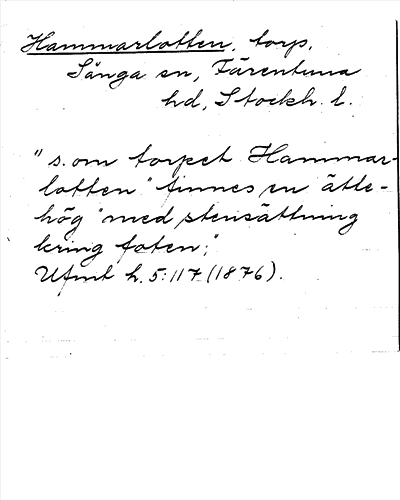 Hammarlotten, torp,
Sånga sn, Färentuna
hd, Stockh. l.
"s.om torpet Hammar-
lotten" finnes en "ätte-
hög med stensättning
kring foten;"
Ufmt h. 5:117 (1876).